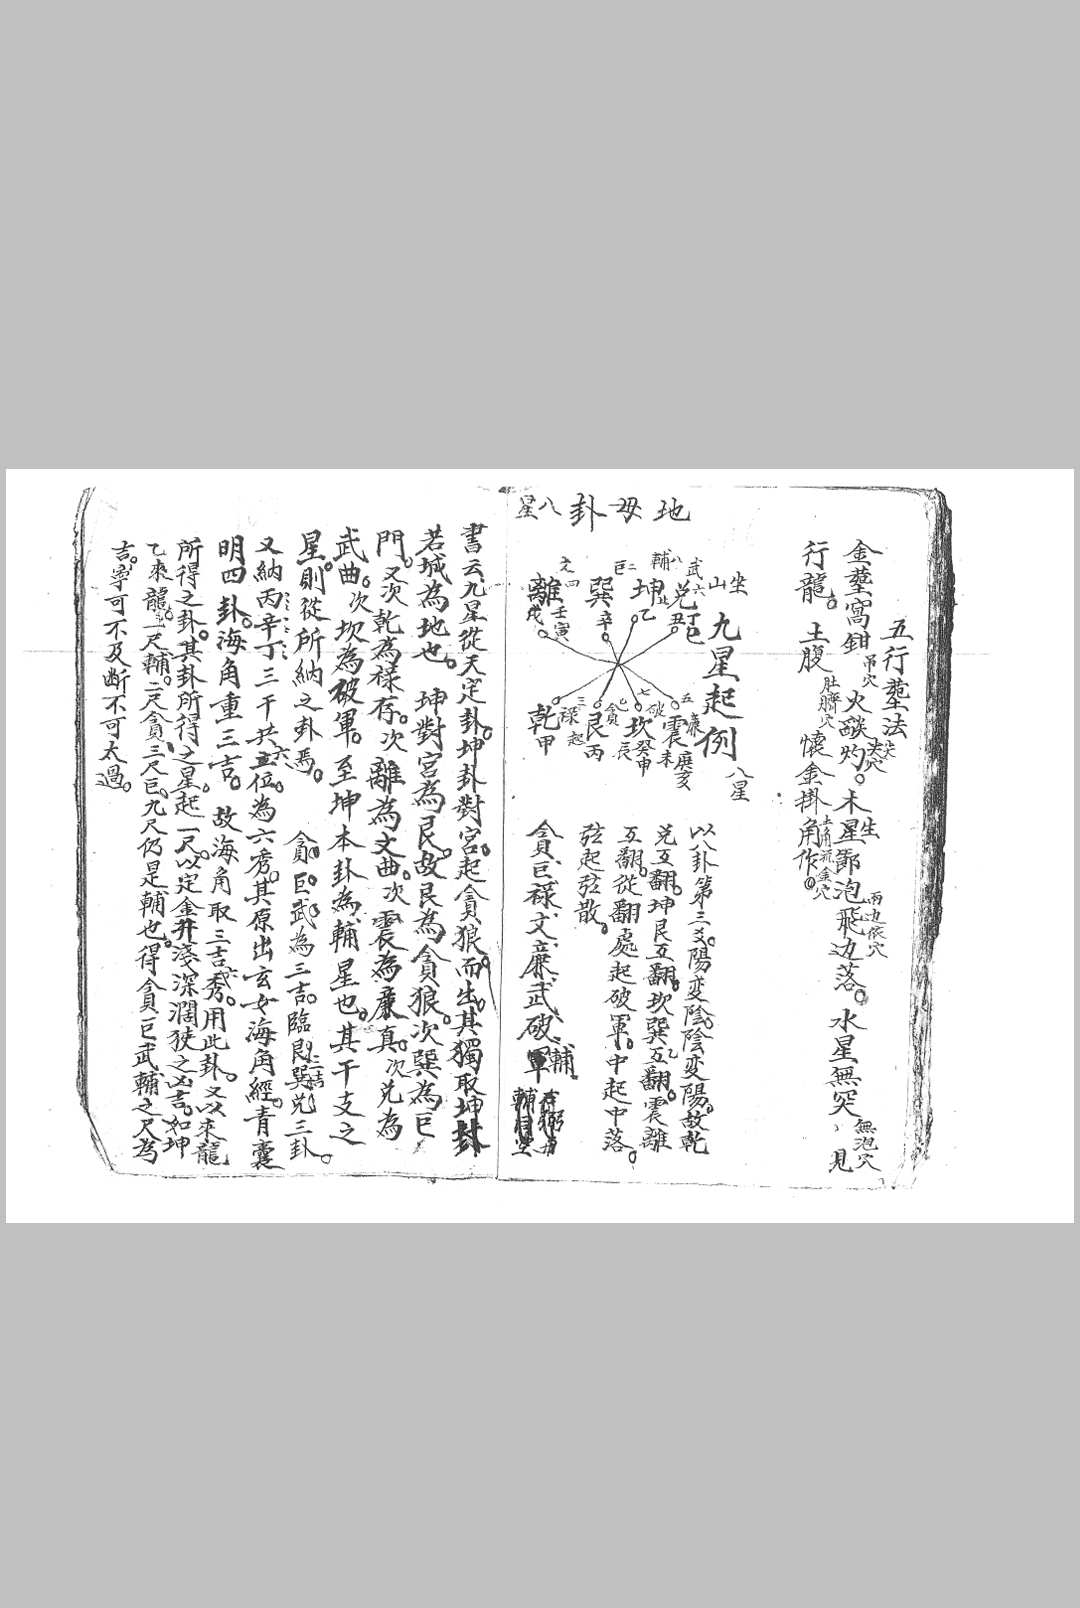 五行塟法
金塟窩鉗 吊穴 火燄灼 尖穴 木星節泡飛边落 兩边依穴 水星無突 無泡穴 見
行龍 土腹 肚臍穴 懷金掛角作 土角流金穴
地母卦八星
九星起例 八星
坐山
武六 兌丁巳丑
輔八 坤乙
巨二 巽辛
文四 離壬寅戌
廉五 震庚亥未
破七 坎癸申辰
貪 艮丙
祿三 乾甲
起
以八卦第三爻陽变陰陰变陽故乾
兌互翻坤艮互翻坎巽互翻震離
互翻從翻處起破軍中起中落
弦起弦散
貪巨祿文廉武破軍輔
書云九星從天定卦坤卦對宮起貪狼而出其獨取坤卦
若城為地也 坤對宮為艮故艮為貪狼次巽為巨
門又次乾為祿存次離為文曲次震為廉真次兌為
武曲次坎為破軍至坤本卦為輔星也其干支之
星則從所納之卦焉 貪巨武為三吉臨艮巽兌三卦
又納丙辛丁三干共六位為六秀其原出玄女海角經青囊
明四卦海角重三吉 故海角取三吉六秀用此卦又以來龍
所得之卦其卦所得之星起一尺以定金井淺深濶狹之凶吉如坤
乙來龍一尺輔二尺貪三尺巨九尺仍是輔也得貪巨武輔之尺為
吉寧可不及断不可太過